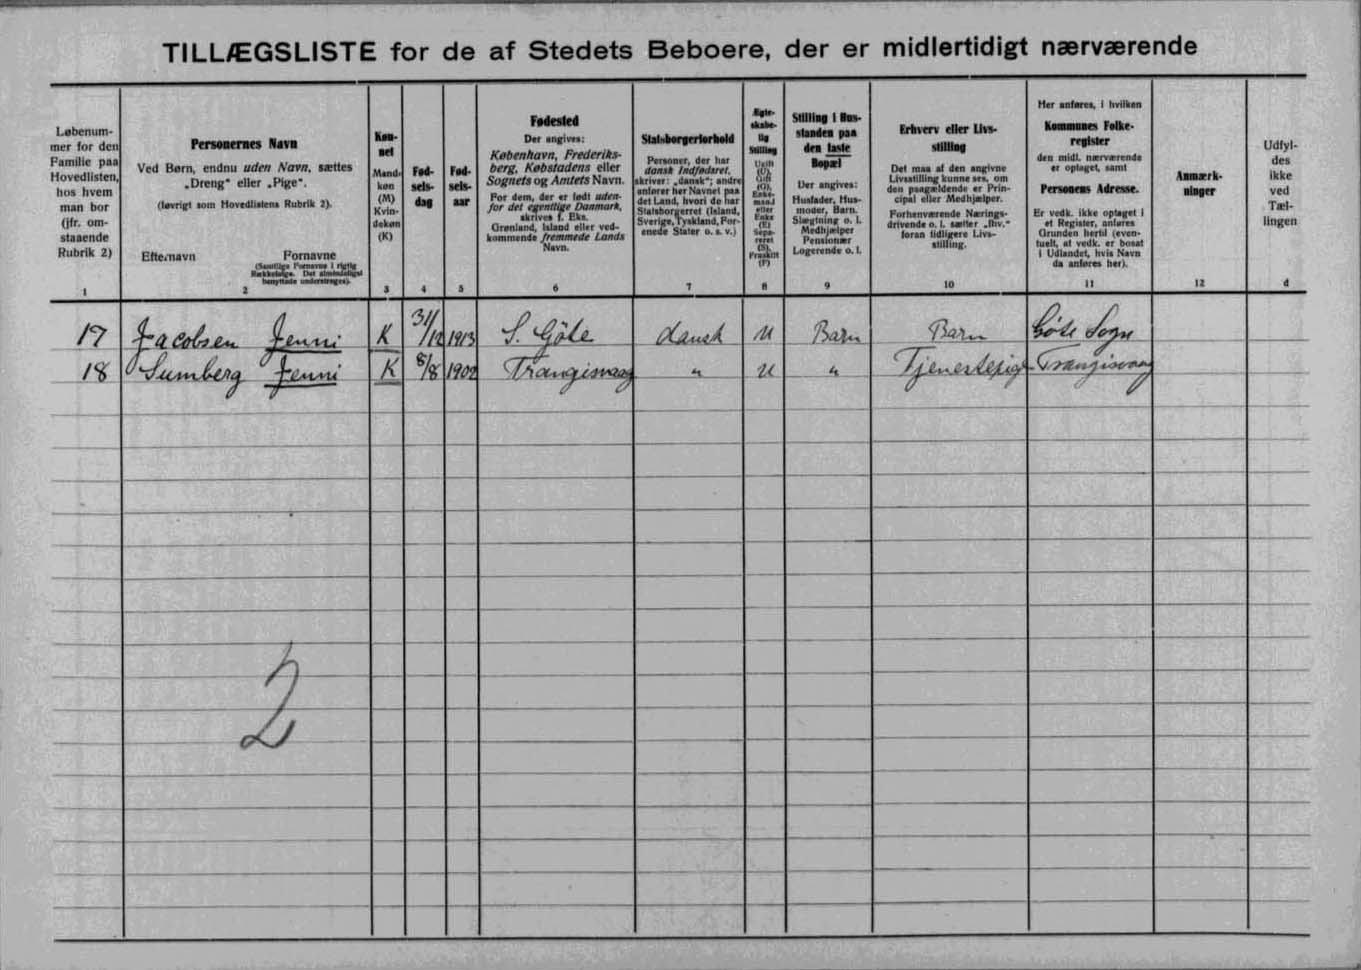 TILLÆGSLISTE for de af Stedets Beboere, der er midlertidigt nærværende
Løbenum-
mer for den
Familie paa
Hovedlisten,
hos hvem
man bor
(jfr. om-
staaende
Rubrik 2)
1
Personernes Navn
Ved Børn, endnu uden Navn, sættes
„Dreng" eller „Pige".
(Iøvrigt som Hovedlistens Rubrik 2).
Efternavn Fornavne
(Samtlige Fornavne i rigtig
Rækkefølge. Det almindeligst
benyttede understreges).
2
Køn-
net
Mand-
køn
(M)
Kvin-
dekøn
(K)
3
Fød-
sels-
dag
4
Fød-
sels-
aar
5
Fødested
Der angives:
København, Frederiks-
berg, Købstadens eller
Sognets og Amtets Navn.
For dem, der er født uden-
for det egentlige Danmark,
skrives f. Eks.
Grønland, Island eller ved-
kommende fremmede Lands
Navn.
6
Statsborgerforhold
Personer, der har
dansk Indfødsret,
skriver: „dansk"; andre
anfører her Navnet paa
det Land, hvori de har
Statsborgerret (Island,
Sverige, Tyskland, For-
enede Stater o. s. v.)
7
Ægte-
skabe-
lig
Stilling
Ugift
(U),
Gift
(G),
Enke-
mand
eller
Enke
(E)
Sepa-
reret
(S),
Fraskilt
(F)
8
Stilling i Hus-
standen paa
den faste
Bopæl
Der angives:
Husfader, Hus-
moder, Barn,
Slægtning o. l.
Medhjælper
Pensionær
Logerende o. l.
9
Erhverv eller Livs-
stilling
Det maa af den angivne
Livsstilling kunne ses, om
den paagældende er Prin-
cipal eller Medhjælper.
Forhenværende Nærings-
drivende o. l. sætter „fhv."
foran tidligere Livs-
stilling.
10
Her anføres, i hvilken
Kommunes Folke-
register
den midl. nærværende
er optaget, samt
Personens Adresse.
Er vedk. ikke optaget i
et Register, anføres
Grunden hertil (even-
tuelt, at vedk. er bosat
i Udlandet, hvis Navn
da anføres her).
11
Anmærk-
ninger
12
Udfyl-
des
ikke
ved
Tæl-
lingen
d
17 Jacobsen Jenni K 31/12 1913 S. Göte dansk U Barn Barn Göte Sogn
18 Sumberg Jenni K 8/8 1902 Trangisvaag " U " Tjenestepige Trangisvaag
2